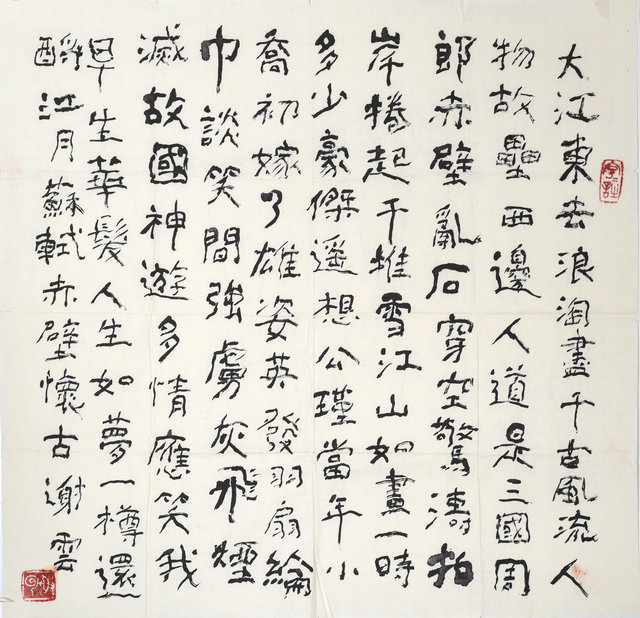 大江東去浪淘盡千古風流人
物故壘西邊人道是三國周
郎赤壁亂石穿空驚濤拍
岸捲起千堆雪江山如畫一時
多少豪傑遥想公瑾當年小
喬初嫁了雄姿英發羽扇綸
巾談笑間強虜灰飛煙
滅故國神遊多情應笑我
早生華髮人生如夢一樽還
酹江月蘇軾赤壁懷古謝雲